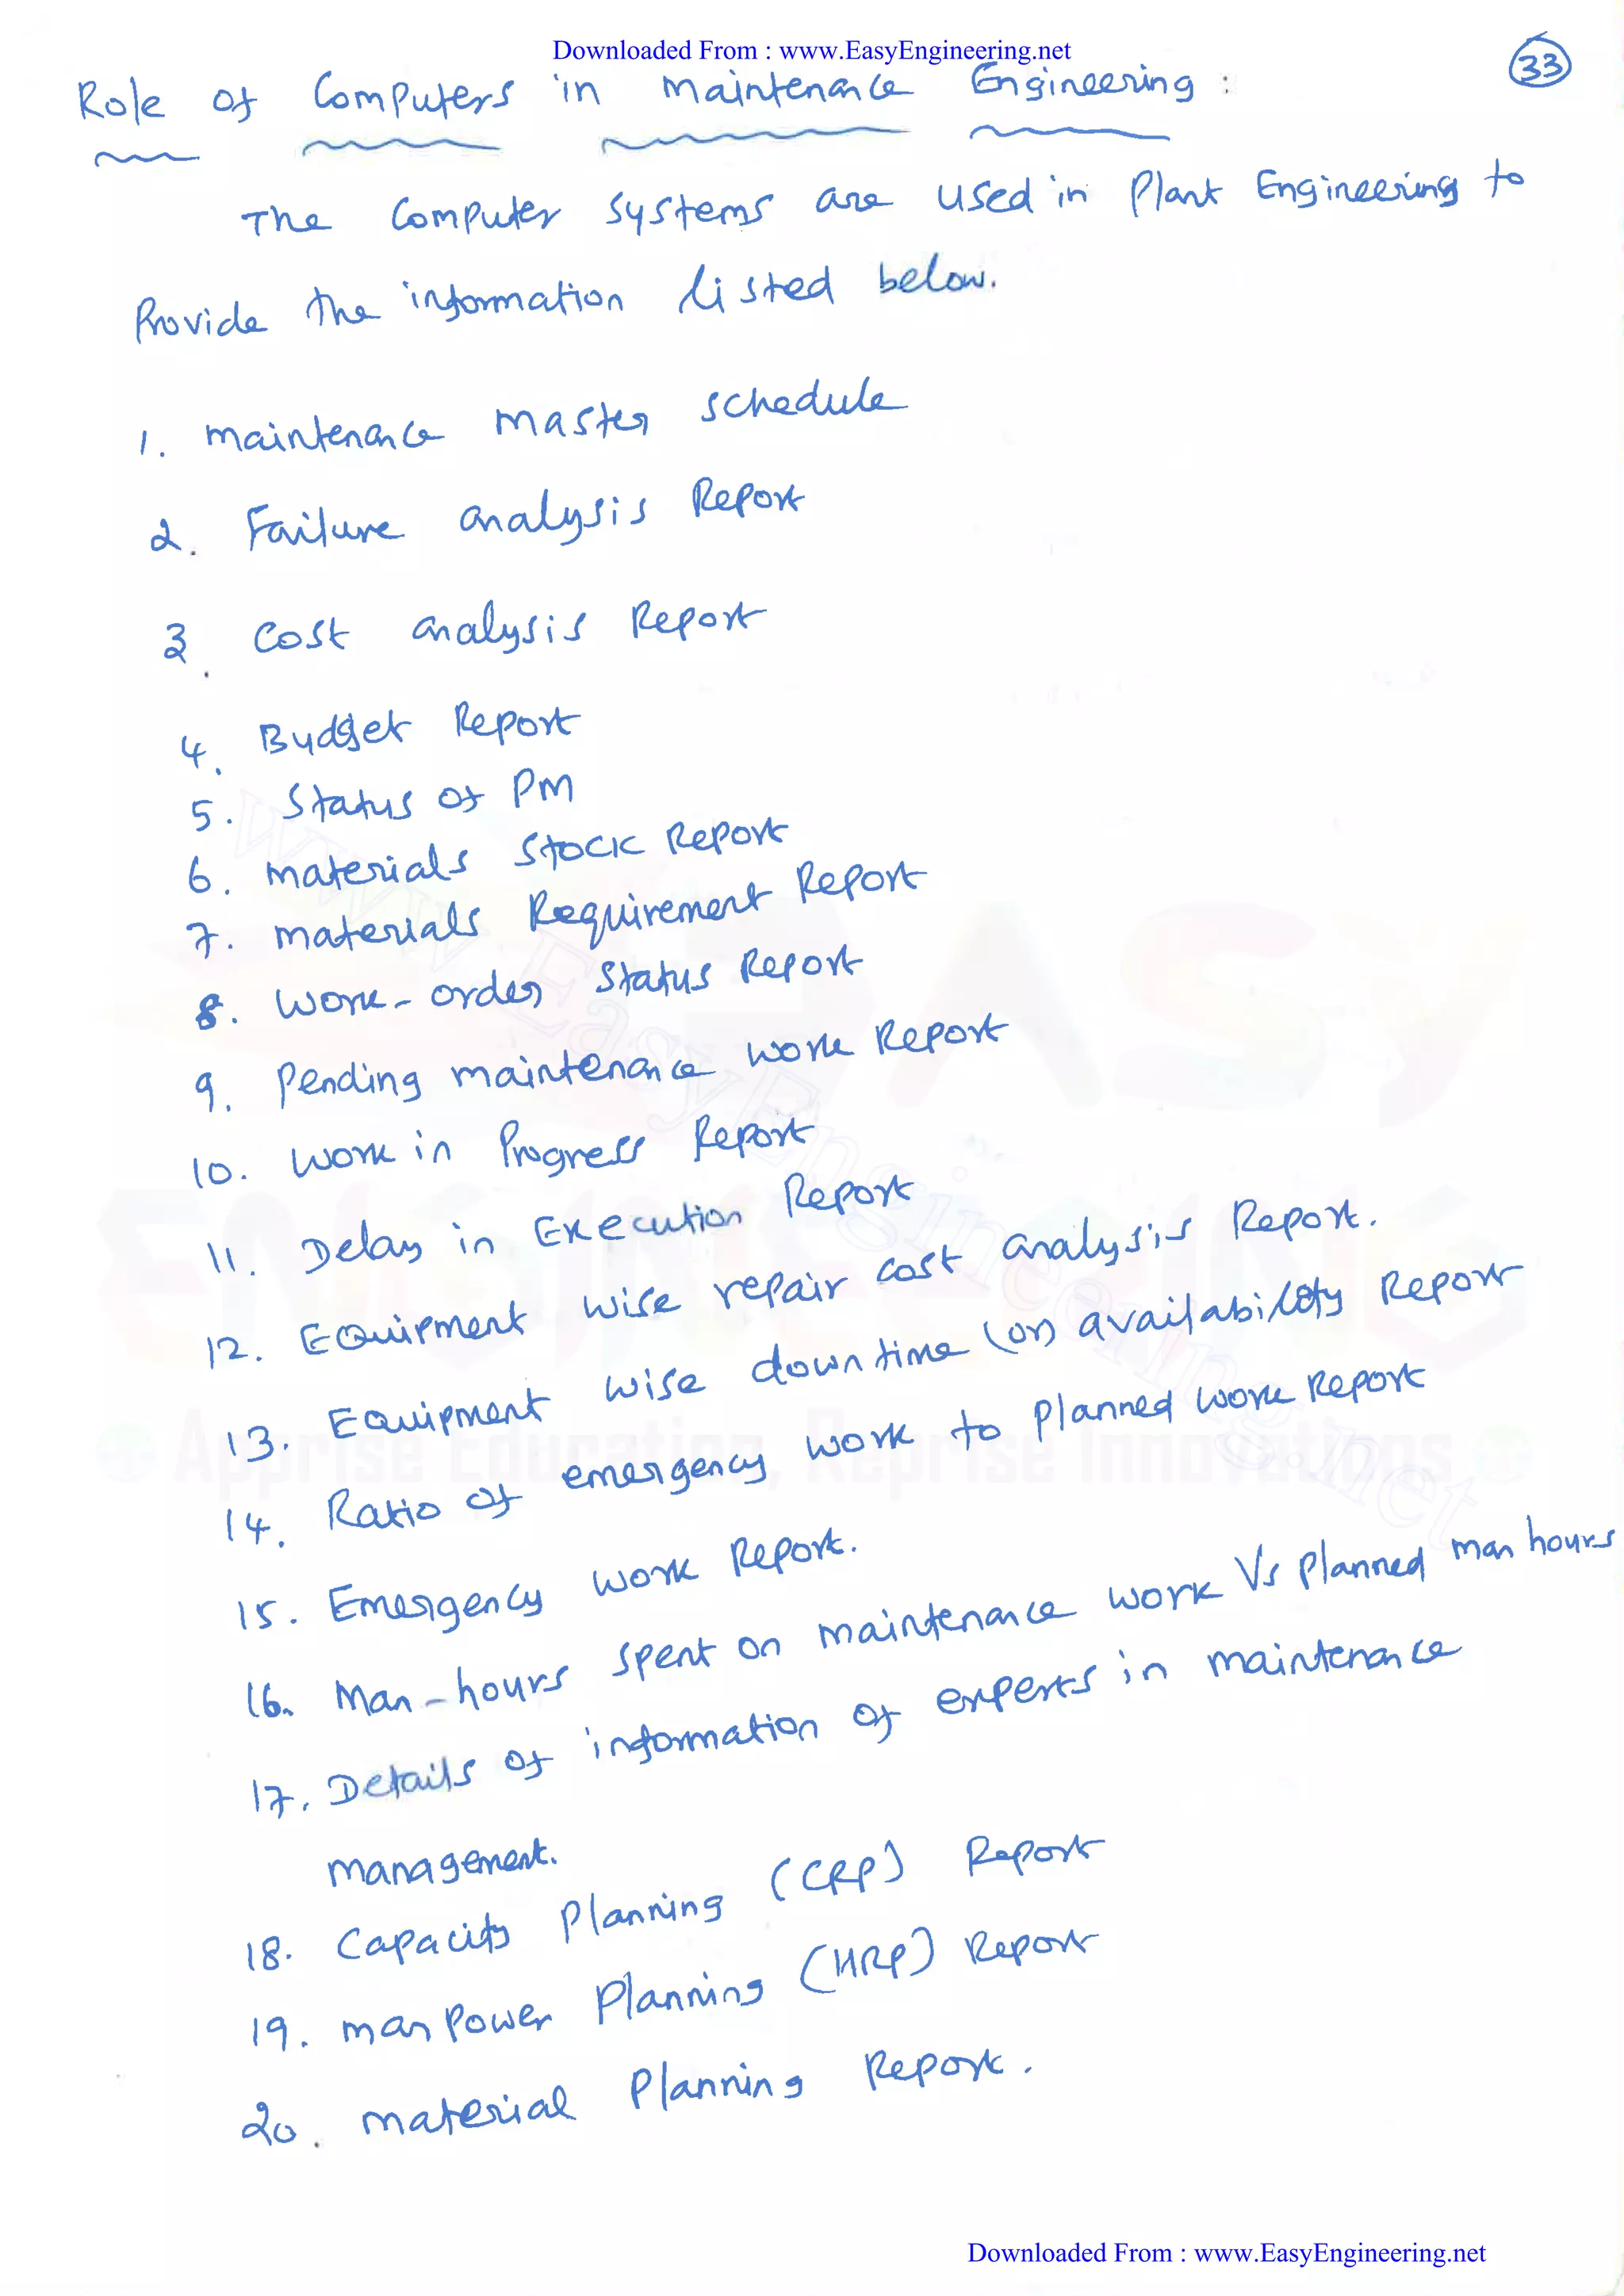 Downloaded From : www.EasyEngineering.net
33
Role of Computers in maintenance Engineering :
The Computer Systems are used in Plant Engineering to
Provide the information listed below.
1. maintenance master schedule
2. Failure analysis Report
3. Cost analysis Report
4. Budget Report
5. Status of PM
6. materials Stock Report
7. materials Requirement Report
8. Work-order Status Report
9. Pending maintenance work Report
10. Work in Progress Report
11. Delay in Execution Report
12. Equipment wise repair cost analysis Report.
13. Equipment wise down time (or) availability Report
14. Ratio of emergency work to planned work Report
15. Emergency work Report.
16. Man-hours spent on maintenance work Vs planned man hours
17. Details of information of experts in maintenance
management.
18. Capacity Planning (CRP) Report
19. man Power Planning (MRP) Report
20. material Planning Report.
www.EasyEngineering.net
EASY
ENGINEERING
Apprise Education, Reprise Innovations
Downloaded From : www.EasyEngineering.net